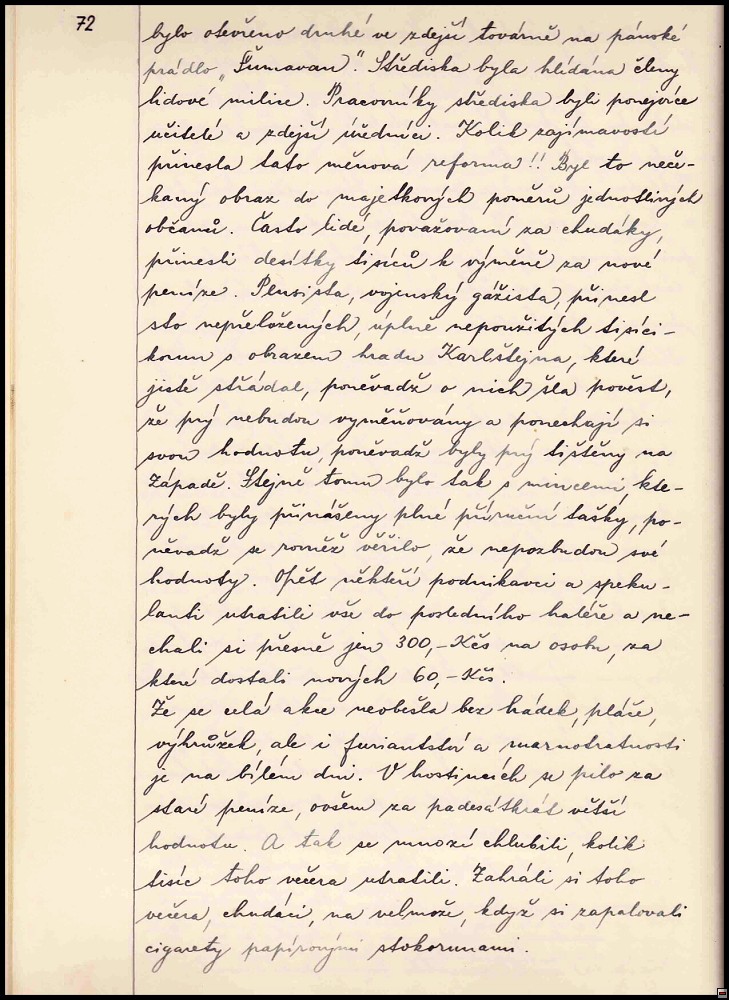 72
bylo otevřeno druhé ve zdejší továrně na pánské
prádlo „Šumavan". Střediska byla hlídána členy
lidové milice. Pracovníky střediska byli ponejvíce
učitelé a zdejší úředníci. Kolik zajímavostí
přinesla tato měnová reforma!! Byl to neče-
kaný obraz do majetkových poměrů jednotlivých
občanů. Často lidé, považovaní za chudáky,
přinesli desítky tisíců k výměně za nové
peníze. Plusista, vojenský gážista, přinesl
sto nepřeložených, úplně nepoužitých tisíci-
korun s obrazem hradu Karlštejna, které
jistě střádal, poněvadž o nich šla pověst,
že prý nebudou vyměňovány a ponechají si
svou hodnotu, poněvadž byly prý tištěny na
Západě. Stejně tomu bylo tak s mincemi, kte-
rých byly přinášeny plné příruční tašky, po-
něvadž se rovněž věřilo, že nepozbudou své
hodnoty. Opět někteří podnikavci a speku-
lanti utratili vše do posledního haléře a ne-
chali si přesně jen 300,-Kčs na osobu, za
které dostali nových 60,-Kčs.
Že se celá akce neobešla bez hádek, pláče,
výhrůžek, ale i furiantství a marnotratnosti
je na bílém dni. V hostincích se pilo za
staré peníze, ovšem za padesátkrát větší
hodnotu. A tak se mnozí chlubili, kolik
tisíc toho večera utratili. Zahráli si toho
večera, chudáci, na velmože, když si zapalovali
cigarety papírovými stokorunami.